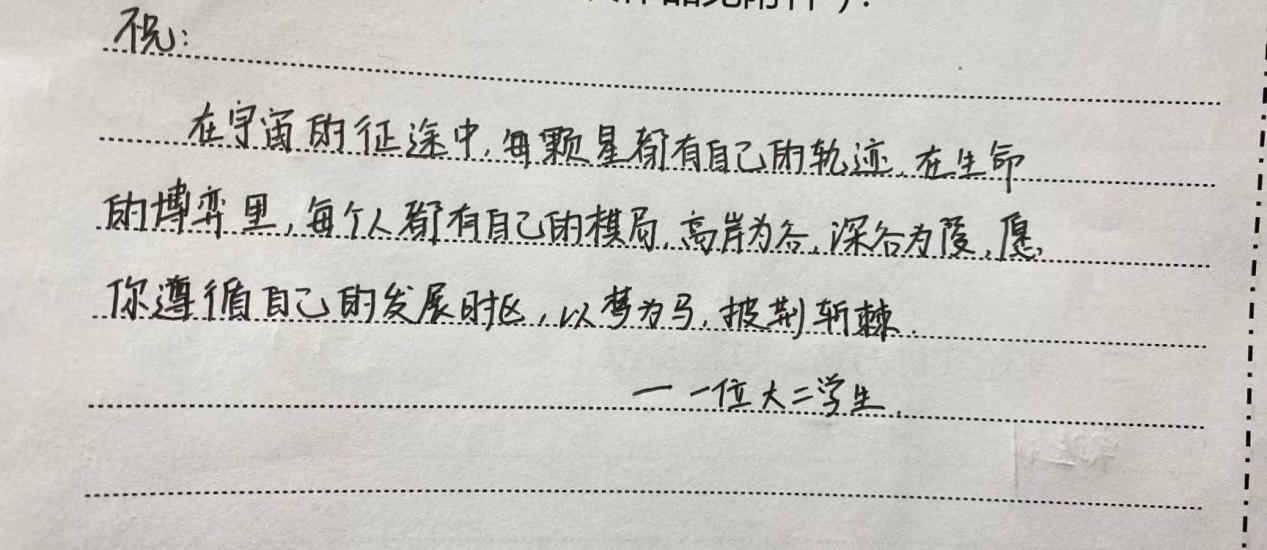 祝:
在宇宙的征途中,每颗星都有自己的轨迹.在生命
的博弈里,每个人都有自己的棋局.高岸为谷,深谷为陵,愿
你遵循自己的发展时区,以梦为马,披荆斩棘.
——一位大二学生.